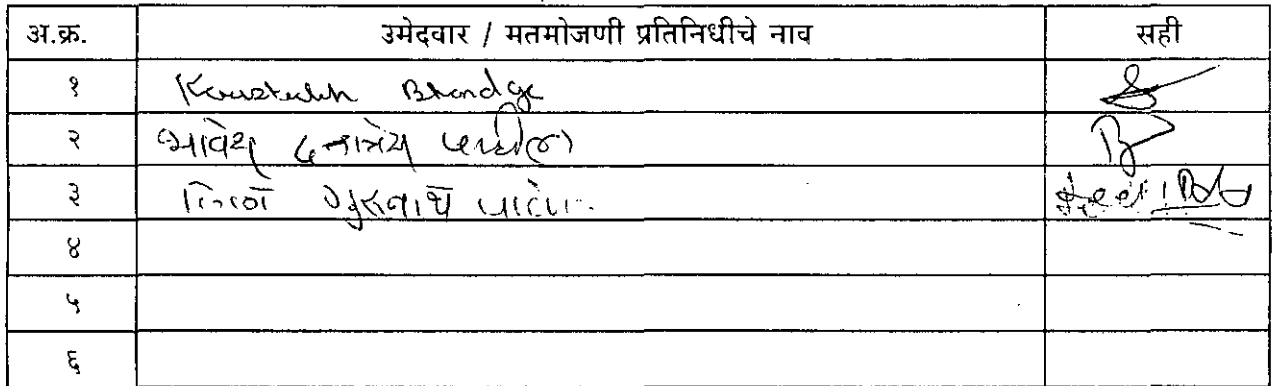 अ.क्र. उमेदवार / मतमोजणी प्रतिनिधीचे नाव सही
१ Kaustubh
२ भावेश दत्तात्रेय पाटील
३ गुरुनाथ पाटील
४
५
६